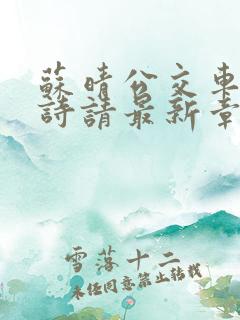 蘇晴公交車
詩請最新章
雪落十二
未经同意禁止转载